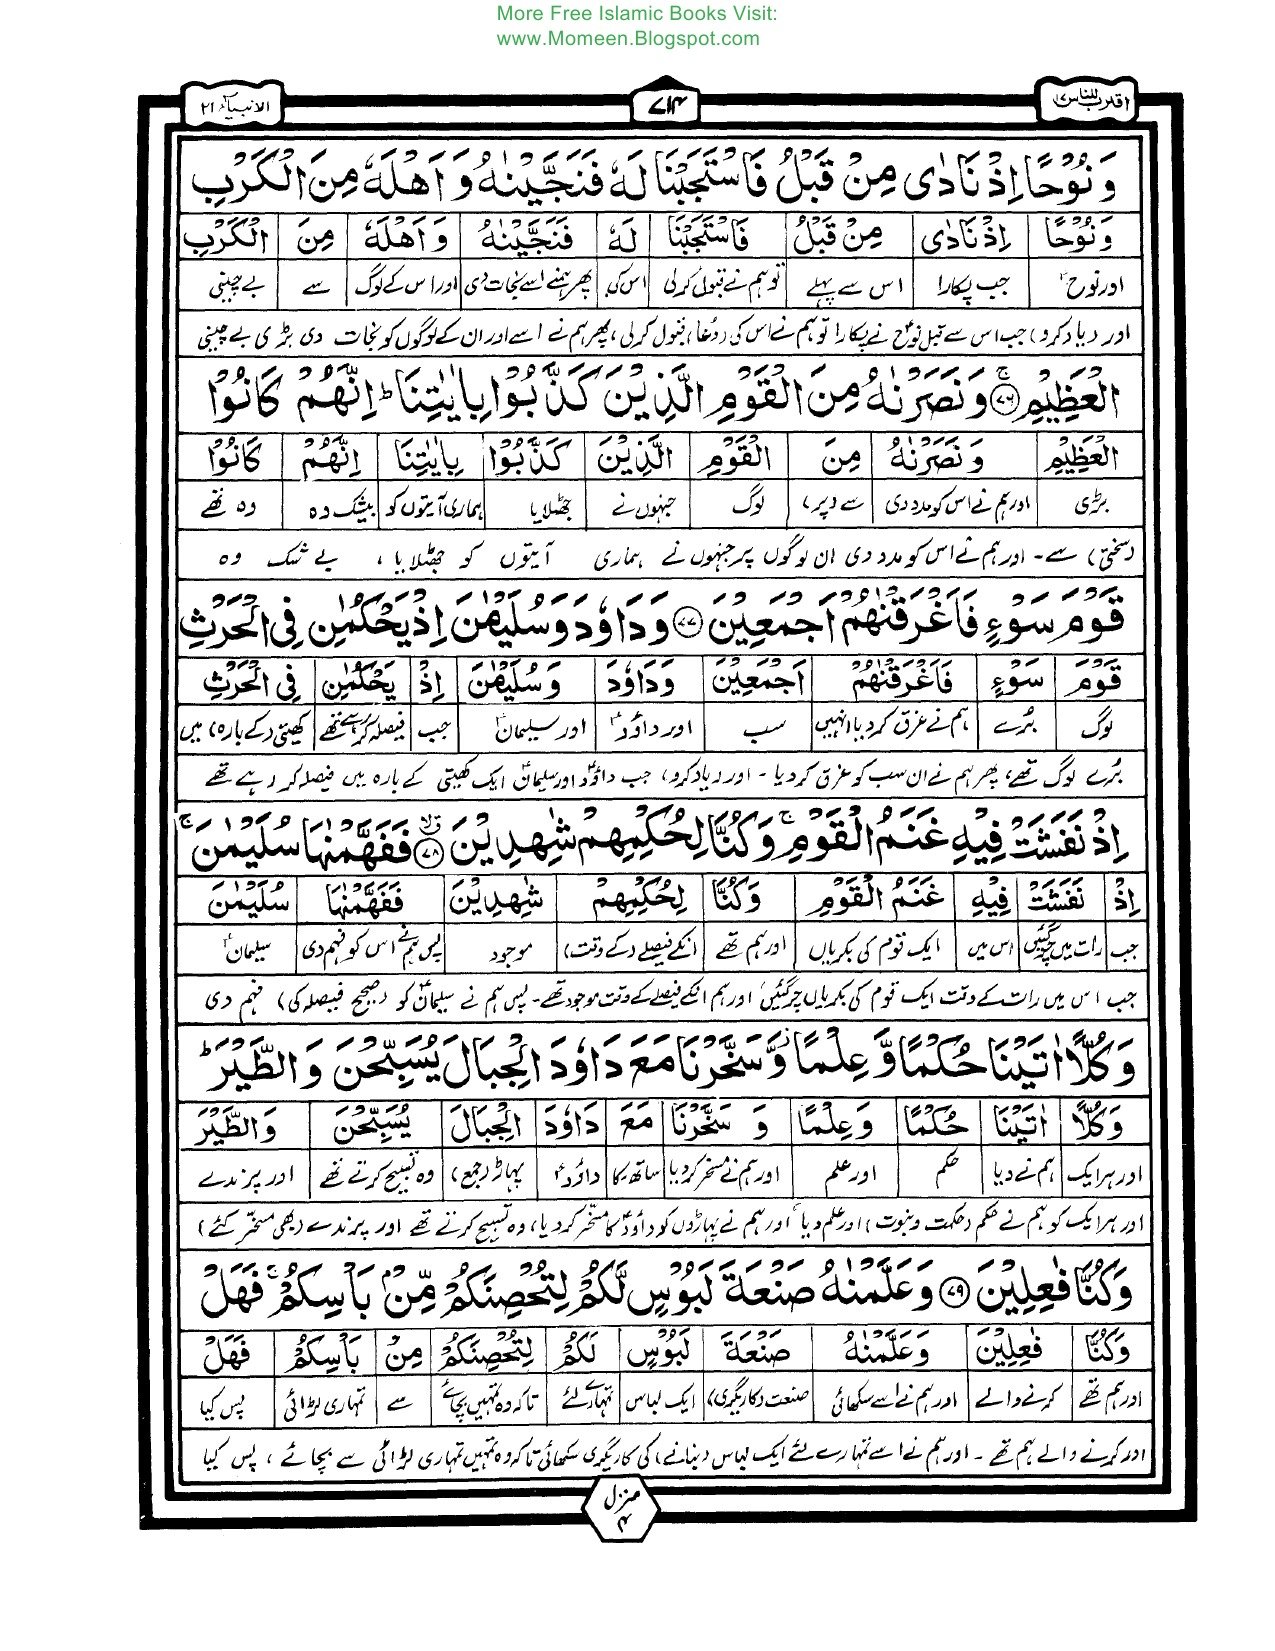 More Free Islamic Books Visit:
www.Momeen.Blogspot.com
اقترب للناس ۱۷
۷۱۴
الانبیاء ۲۱
وَنُوْحًا اِذْ نَادٰى مِنْ قَبْلُ فَاسْتَجَبْنَا لَهٗ فَنَجَّيْنٰهُ وَاَهْلَهٗ مِنَ الْكَرْبِ
وَنُوْحًا اِذْ نَادٰى مِنْ قَبْلُ فَاسْتَجَبْنَا لَهٗ فَنَجَّيْنٰهُ وَاَهْلَهٗ مِنَ الْكَرْبِ
اور نوحؑ جب پکارا اس سے پہلے تو ہم نے قبول کرلی اس کی پھر ہمنے اسے نجات دی اور اس کے لوگ سے بے چینی
اور (یاد کرو) جب اس سے قبل نوحؑ نے پکارا تو ہم نے اس کی (دُعا) قبول کرلی، پھر ہم نے اسے اور ان کے لوگوں کو نجات دی بڑی بے چینی
الْعَظِيْمِ ۚ‏ ﴿۷۶﴾ وَنَصَرْنٰهُ مِنَ الْقَوْمِ الَّذِيْنَ كَذَّبُوْا بِاٰيٰتِنَا ؕ اِنَّهُمْ كَانُوْا
الْعَظِيْمِ وَنَصَرْنٰهُ مِنَ الْقَوْمِ الَّذِيْنَ كَذَّبُوْا بِاٰيٰتِنَا اِنَّهُمْ كَانُوْا
بڑی اور ہم نے اس کو مدد دی سے (پر) لوگ جنہوں نے جھٹلایا ہماری آیتوں کو بیشک وہ وہ تھے
(سختی) سے۔ اور ہم نے اس کو مدد دی ان لوگوں پر جنہوں نے ہماری آیتوں کو جھٹلایا، بے شک وہ
قَوْمَ سَوْءٍ فَاَغْرَقْنٰهُمْ اَجْمَعِيْنَ ﴿۷۷﴾ وَدَاوٗدَ وَسُلَيْمٰنَ اِذْ يَحْكُمٰنِ فِى الْحَرْثِ
قَوْمَ سَوْءٍ فَاَغْرَقْنٰهُمْ اَجْمَعِيْنَ وَدَاوٗدَ وَسُلَيْمٰنَ اِذْ يَحْكُمٰنِ فِى الْحَرْثِ
لوگ بُرے ہم نے غرق کر دیا انہیں سب اور داؤدؑ اور سلیمانؑ جب فیصلہ کر رہے تھے کھیتی (کے بارہ) میں
بُرے لوگ تھے، پھر ہم نے ان سب کو غرق کر دیا۔ اور (یاد کرو) جب داؤدؑ اور سلیمانؑ ایک کھیتی کے بارہ میں فیصلہ کر رہے تھے
اِذْ نَفَشَتْ فِيْهِ غَنَمُ الْقَوْمِ ۚ وَكُنَّا لِحُكْمِهِمْ شٰهِدِيْنَ ﴿۷۸﴾ فَفَهَّمْنٰهَا سُلَيْمٰنَ ۚ
اِذْ نَفَشَتْ فِيْهِ غَنَمُ الْقَوْمِ وَكُنَّا لِحُكْمِهِمْ شٰهِدِيْنَ فَفَهَّمْنٰهَا سُلَيْمٰنَ
جب رات میں چر گئیں اس میں ایک قوم کی بکریاں اور ہم تھے انکے فیصلے (کے وقت) موجود پس ہم نے اس کو فہم دی سلیمانؑ
جب اس میں رات کے وقت ایک قوم کی بکریاں چر گئیں اور ہم انکے فیصلے کے وقت موجود تھے۔ پس ہم نے سلیمانؑ کو (صحیح فیصلہ کی) فہم دی
وَكُلًّا اٰتَيْنَا حُكْمًا وَّعِلْمًا وَّسَخَّرْنَا مَعَ دَاوٗدَ الْجِبَالَ يُسَبِّحْنَ وَالطَّيْرَ ؕ
وَكُلًّا اٰتَيْنَا حُكْمًا وَعِلْمًا وَ سَخَّرْنَا مَعَ دَاوٗدَ الْجِبَالَ يُسَبِّحْنَ وَالطَّيْرَ
اور ہر ایک ہم نے دیا حکم اور علم اور ہم نے مسخر کر دیا ساتھ۔ کا داؤدؑ پہاڑ (جمع) وہ تسبیح کرتے تھے اور پرندے
اور ہر ایک کو ہم نے حکم (حکمت و نبوت) اور علم دیا اور ہم نے پہاڑوں کو داؤدؑ کا مسخّر کر دیا، وہ تسبیح کرتے تھے اور پرندے (بھی مسخّر کئے)
وَكُنَّا فٰعِلِيْنَ ﴿۷۹﴾ وَعَلَّمْنٰهُ صَنْعَةَ لَبُوْسٍ لَّكُمْ لِتُحْصِنَكُمْ مِّنْ بَاْسِكُمْ ۚ فَهَلْ
وَكُنَّا فٰعِلِيْنَ وَعَلَّمْنٰهُ صَنْعَةَ لَبُوْسٍ لَكُمْ لِتُحْصِنَكُمْ مِنْ بَاْسِكُمْ فَهَلْ
اور ہم تھے کرنے والے اور ہم نے اسے سکھائی صنعت (کاریگری) ایک لباس تمہارے لئے تاکہ وہ تمہیں بچائے سے تمہاری لڑائی پس کیا
اور کرنے والے ہم تھے۔ اور ہم نے اسے تمہارے لئے ایک لباس (بنانے) کی کاریگری سکھائی تاکہ وہ تمہیں تمہاری لڑائی سے بچائے، پس کیا
منزل ۴